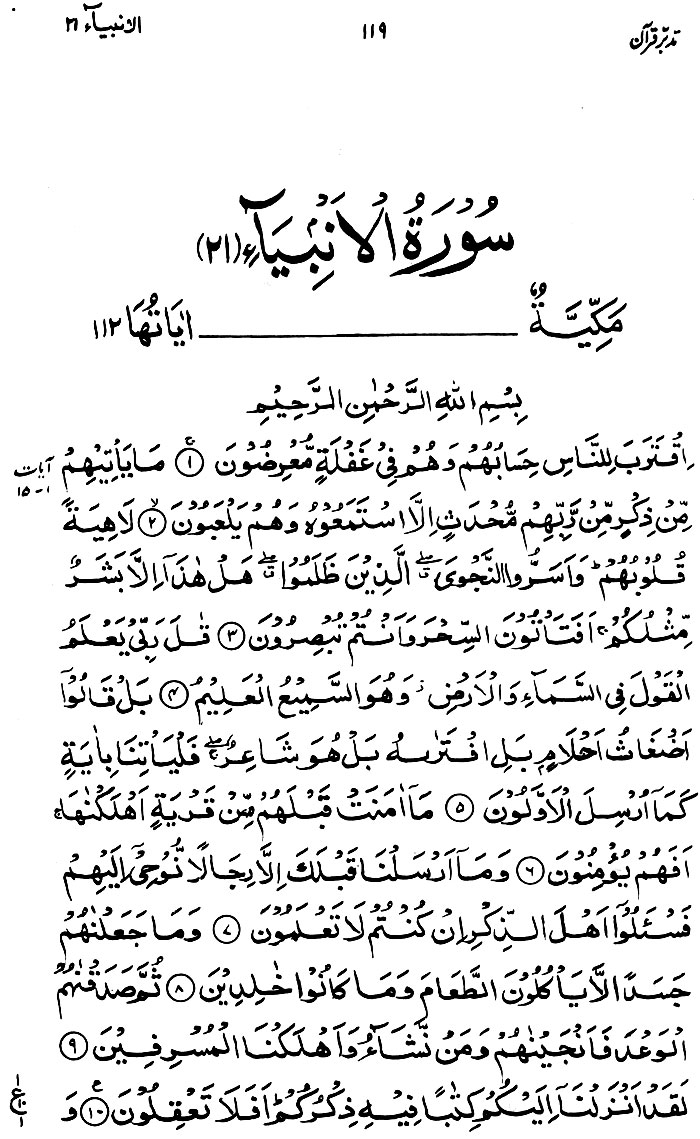 تدبّر قرآن ۱۱۹ الانبیآء ۲۱
سُوْرَةُ الْاَنْۢبِيَآءِ (۲۱)
مَكِّيَّةٌ اٰيَاتُهَا ۱۱۲
بِسْمِ اللهِ الرَّحْمٰنِ الرَّحِيْمِ
اِقْتَرَبَ لِلنَّاسِ حِسَابُهُمْ وَهُمْ فِيْ غَفْلَةٍ مُّعْرِضُوْنَ ۚ ① مَا يَاْتِيْهِمْ
آیات
۱-۱۵
مِّنْ ذِكْرٍ مِّنْ رَّبِّهِمْ مُّحْدَثٍ اِلَّا اسْتَمَعُوْهُ وَهُمْ يَلْعَبُوْنَ ② لَاهِيَةً
قُلُوْبُهُمْ ؕ وَاَسَرُّوا النَّجْوَى ۖ الَّذِيْنَ ظَلَمُوْا ۖ هَلْ هٰذَآ اِلَّا بَشَرٌ
مِّثْلُكُمْ ۚ اَفَتَاْتُوْنَ السِّحْرَ وَاَنْتُمْ تُبْصِرُوْنَ ③ قٰلَ رَبِّيْ يَعْلَمُ
الْقَوْلَ فِي السَّمَآءِ وَالْاَرْضِ ؗ وَهُوَ السَّمِيْعُ الْعَلِيْمُ ④ بَلْ قَالُوْٓا
اَضْغَاثُ اَحْلَامٍۭ بَلِ افْتَرٰىهُ بَلْ هُوَ شَاعِرٌ ۖ فَلْيَاْتِنَا بِاٰيَةٍ
كَمَآ اُرْسِلَ الْاَوَّلُوْنَ ⑤ مَآ اٰمَنَتْ قَبْلَهُمْ مِّنْ قَرْيَةٍ اَهْلَكْنٰهَا ۚ
اَفَهُمْ يُؤْمِنُوْنَ ⑥ وَمَآ اَرْسَلْنَا قَبْلَكَ اِلَّا رِجَالًا نُّوْحِيْٓ اِلَيْهِمْ
فَسْـَٔلُوْٓا اَهْلَ الذِّكْرِ اِنْ كُنْتُمْ لَا تَعْلَمُوْنَ ⑦ وَمَا جَعَلْنٰهُمْ
جَسَدًا لَّا يَاْكُلُوْنَ الطَّعَامَ وَمَا كَانُوْا خٰلِدِيْنَ ⑧ ثُمَّ صَدَقْنٰهُمُ
الْوَعْدَ فَاَنْجَيْنٰهُمْ وَمَنْ نَّشَآءُ وَاَهْلَكْنَا الْمُسْرِفِيْنَ ⑨
لَقَدْ اَنْزَلْنَآ اِلَيْكُمْ كِتٰبًا فِيْهِ ذِكْرُكُمْ ؕ اَفَلَا تَعْقِلُوْنَ ۚ ⑩ وَ
۱
ع
۱